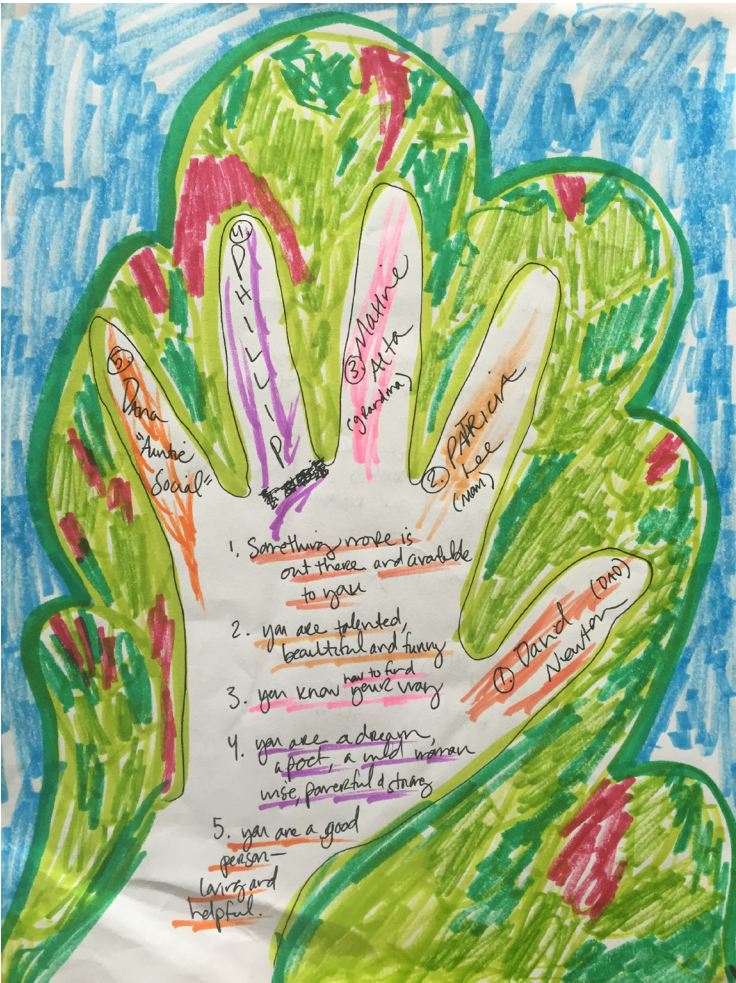 5. Dona
"Auntie
Social"
4. PHILLIP
3. Maxine
Alta
(grandma)
2. PATRICIA
Lee
(MOM)
1. David (DAD)
Newton
1. Something more is
out there and available
to you
2. you are talented,
beautiful and funny
3. you know how to find your way
4. you are a dream,
a poet, a wild woman
wise, powerful & strong
5. you are a good
person—
loving and
helpful.